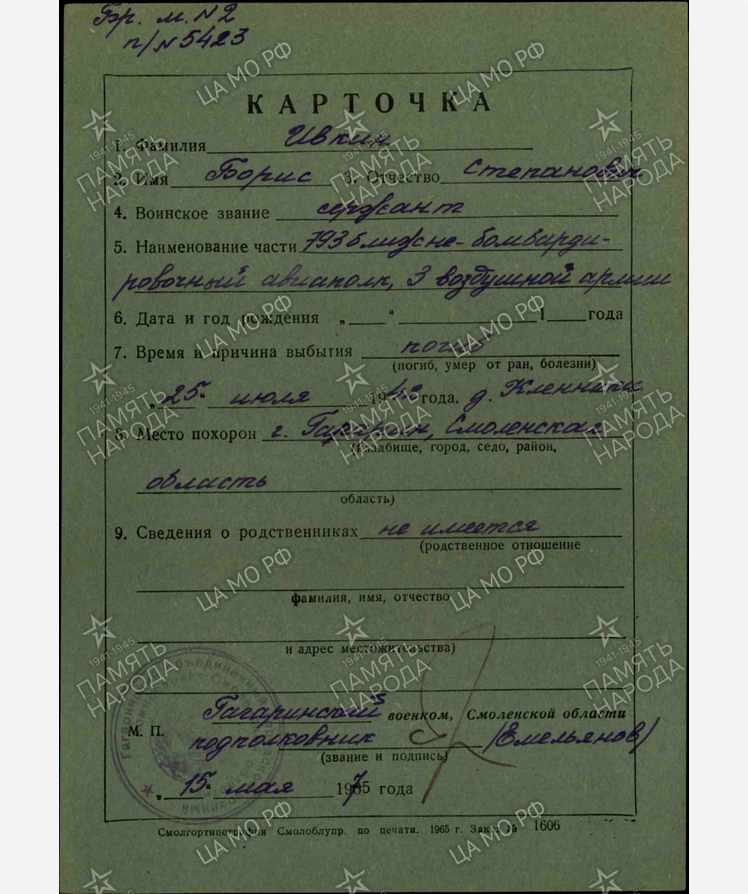 Бр. м. №2
п/№ 5423
КАРТОЧКА
1. Фамилия Ивкин
2. Имя Борис 3. Отчество Степанович
4. Воинское звание сержант
5. Наименование части 793 ближне-бомбарди-
ровочный авиаполк, 3 воздушной армии
6. Дата и год рождения „ “ 1 года
7. Время и причина выбытия погиб
(погиб, умер от ран, болезни)
„25“ июля 1942 года. д.
8. Место похорон г. Гагарин, Смоленская
(кладбище, город, село, район,
область
область)
9. Сведения о родственниках не имеется
(родственное отношение
фамилия, имя, отчество
и адрес местожительства)
Гагаринский военком, Смоленской области
М. П. подполковник (Емельянов)
(звание и подпись)
„15“ мая 1967 года
Смолгортипография Смолоблупр. по печати. 1965 г. Зак. № 1606
ЦА МО РФ
1941-1945
ПАМЯТЬ
НАРОДА